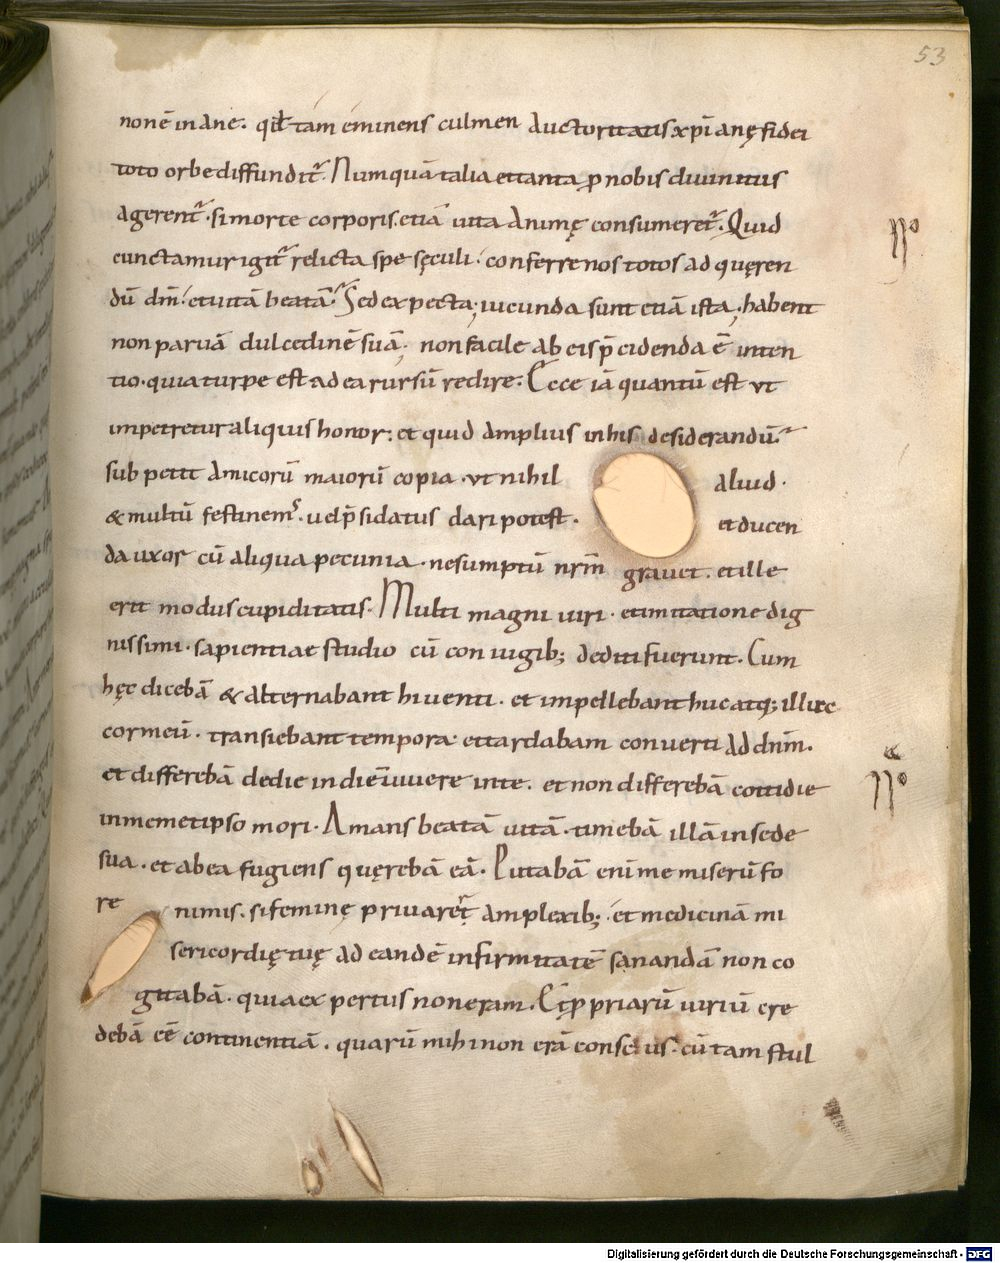 53
non ē inane. qđ tam eminens culmen auctoritatis xp̄ianę fidei
toto orbe diffundit᷑. Numquā talia et tanta ꝓ nobis divinitus
agerent᷑. si morte corporis. etiā uita animę consumeret᷑. Quid
cunctamur igit᷑ relicta spe sęculi. conferre nos totos ad quęren
dū dm̄. et uitā beatā. Sed expecta; iucunda sunt etiā ista; habent
non paruā dulcedinē suā. non facile ab eis p̄cidenda ē inten
tio. quia turpe est ad ea rursū redire. Ecce iā quantū est ut
impetretur aliquis honor. et quid amplius in his desiderandū.
subpetit amicorū maiorū copia. ut nihil aliud.
& multū festinem᷑. uel p̄sidatus dari potest. et ducen
da uxor cū aliqua pecunia. ne sumptū nr̄m gravet. et ille
erit modus cupiditatis. Multi magni uiri. et imitatione dig
nissimi. sapientiae studio cū coniugib; dediti fuerunt. Cum
hęc dicebā & alternabant hi venti. et impellebant huc atq; illuc
cor meū. transiebant tempora et tardabam converti ad dn̄m.
et differebā de die in diē vivere in te. et non differebā cottidie
in memetipso mori. Amans beatā uitā. timebā illā in sede
sua. et ab ea fugiens quęrebā eā. Putabā enim me miserū fo
re nimis. si feminę privaret᷑ amplexib; et medicinā mi
sericordię tuę ad eandē infirmitatē sanandā non co
gitabā. quia expertus non eram. Et ꝓpriarū uiriū cre
debā eē continentiā. quarū mihi non erā conscius. cū tam stul
Digitalisierung gefördert durch die Deutsche Forschungsgemeinschaft - DFG